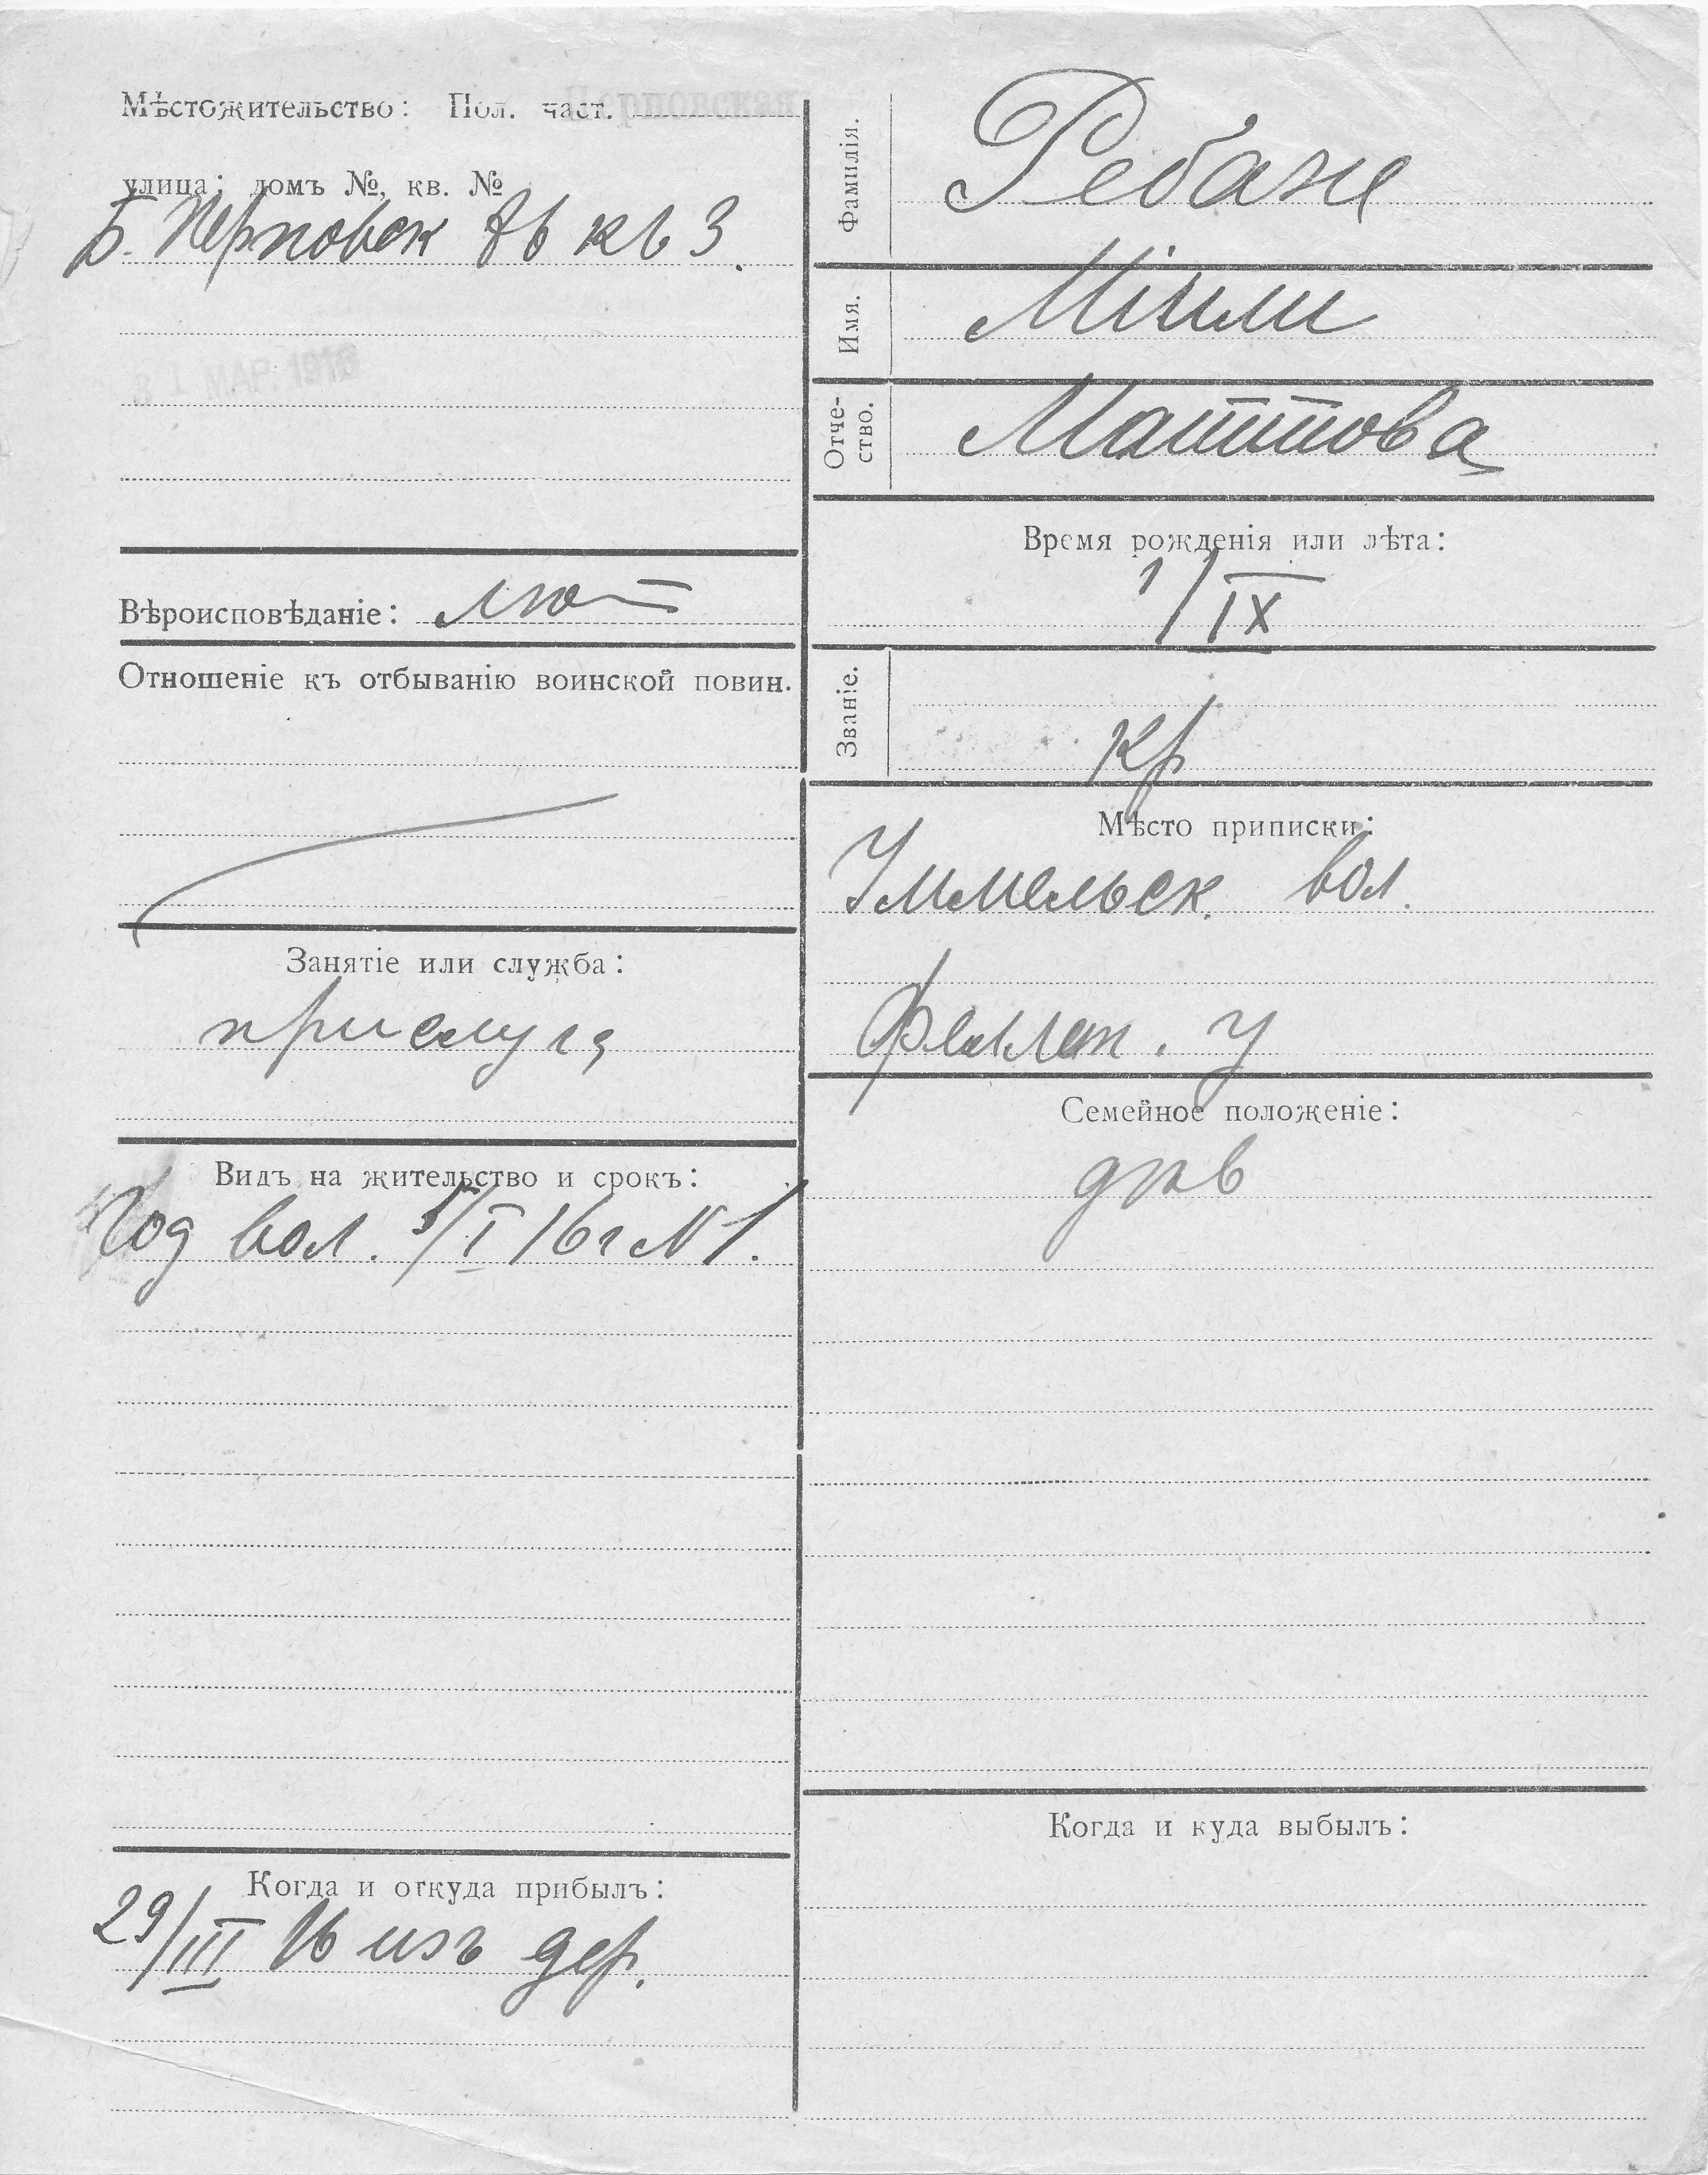 Мѣстожительство: Пол. част. Перновская
улица; домъ №, кв. №
Б. Перновск 86 кв 3.
31 МАР. 1916
Вѣроисповѣданіе: лют
Отношеніе къ отбыванію воинской повин.
Занятіе или служба:
прислуга
Видъ на жительство и срокъ:
Год вол. 5/I 16 г N 1.
Когда и откуда прибылъ:
29/III 16 изъ дер.
Фамилія. Ребане
Имя. Мiили
Отче-
ство. Маттова
Время рожденія или лѣта:
1/IX
Званіе.
кр
Мѣсто приписки:
Уммельск. вол.
у
Семейное положеніе:
Когда и куда выбылъ: